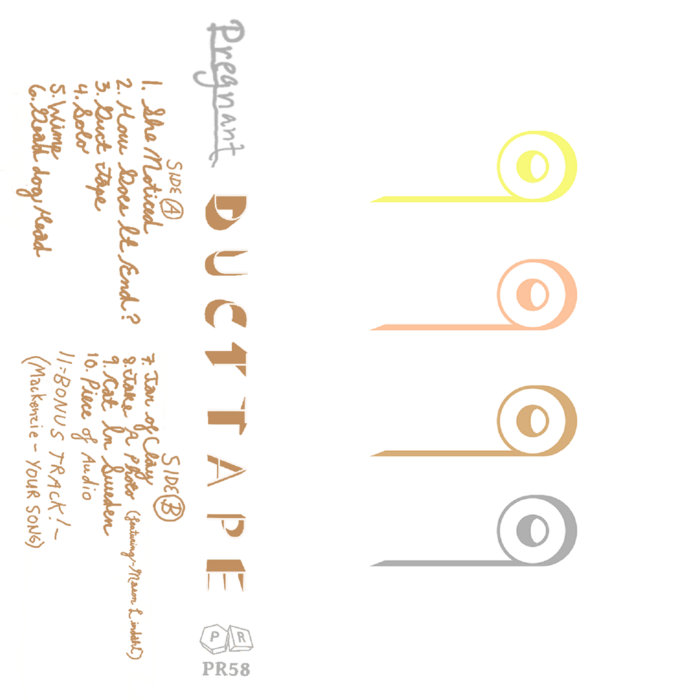 Pregnant
DUCT TAPE
P R
PR58
SIDE A
1. She Noticed
2. How Does It End?
3. Duct Tape
4. Solo
5. Wimp
6. Dead dog Head
SIDE B
7. Jar of Clay
8. Take A Photo (featuring-Mason Lindahl)
9. Cat In Sweden
10. Piece of Audio
11-BONUS TRACK!-
(Mackenzie-YOUR SONG)